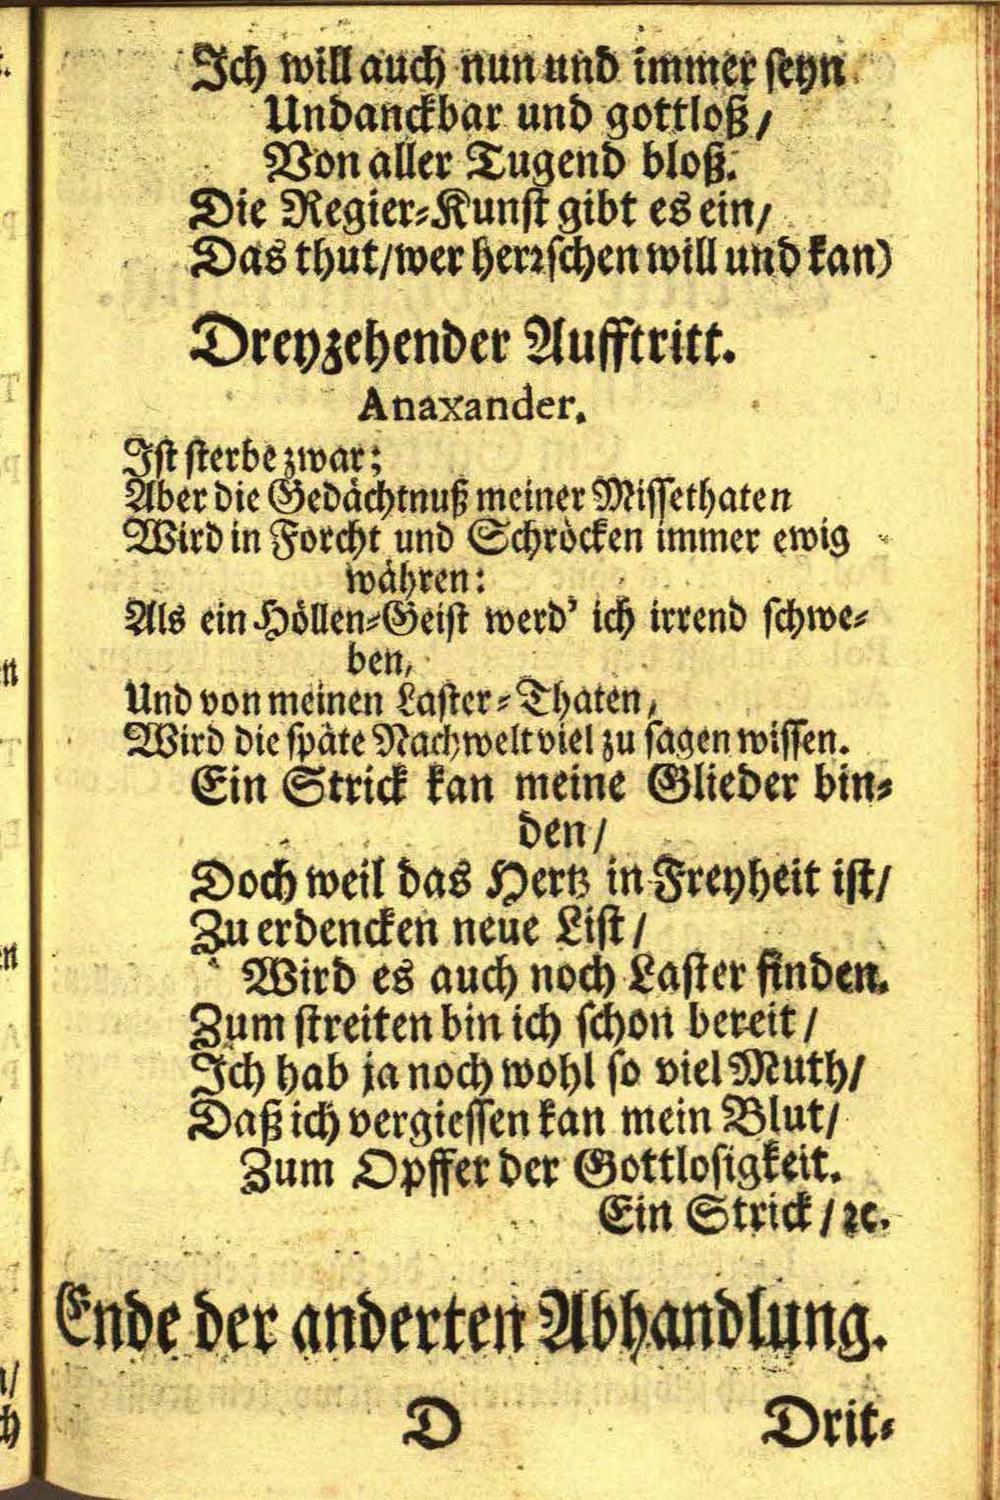 Ich will auch nun und immer seyn
Undanckbar und gottloß /
Von aller Tugend bloß.
Die Regier-Kunst gibt es ein /
Das thut / wer herrschen will und kan)
Dreyzehender Aufftritt.
Anaxander.
Ist sterbe zwar;
Aber die Gedächtnuß meiner Missethaten
Wird in Forcht und Schröcken immer ewig
währen:
Als ein Höllen-Geist werd' ich irrend schwe-
ben,
Und von meinen Laster-Thaten,
Wird die späte Nachwelt viel zu sagen wissen.
Ein Strick kan meine Glieder bin-
den /
Doch weil das Hertz in Freyheit ist /
Zu erdencken neue List /
Wird es auch noch Laster finden.
Zum streiten bin ich schon bereit /
Ich hab ja noch wohl so viel Muth /
Daß ich vergiessen kan mein Blut /
Zum Opffer der Gottlosigkeit.
Ein Strick / ꝛc.
Ende der anderten Abhandlung.
D Drit-